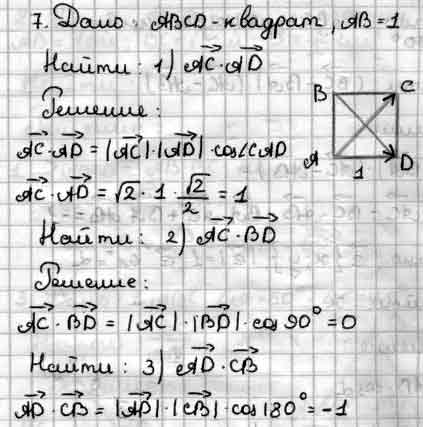 7. Дано: ABCD - квадрат, AB = 1
Найти: 1) $\overrightarrow{AC} \cdot \overrightarrow{AD}$
Решение:
$\overrightarrow{AC} \cdot \overrightarrow{AD} = |\overrightarrow{AC}| \cdot |\overrightarrow{AD}| \cdot \cos \angle CAD$
$\overrightarrow{AC} \cdot \overrightarrow{AD} = \sqrt{2} \cdot 1 \cdot \frac{\sqrt{2}}{2} = 1$
B C
A D
1
Найти: 2) $\overrightarrow{AC} \cdot \overrightarrow{BD}$
Решение:
$\overrightarrow{AC} \cdot \overrightarrow{BD} = |\overrightarrow{AC}| \cdot |\overrightarrow{BD}| \cdot \cos 90^\circ = 0$
Найти: 3) $\overrightarrow{AD} \cdot \overrightarrow{CB}$
$\overrightarrow{AD} \cdot \overrightarrow{CB} = |\overrightarrow{AD}| \cdot |\overrightarrow{CB}| \cdot \cos 180^\circ = -1$